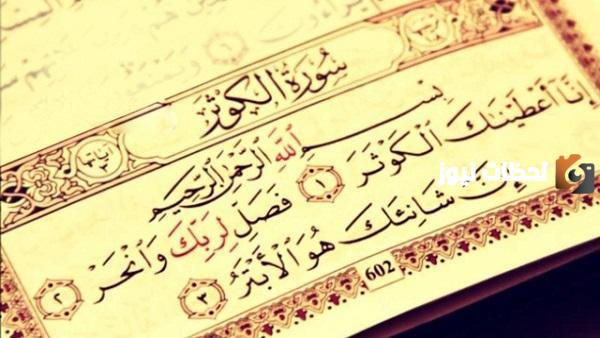 سُورَةُ الكَوْثَرِ
بِسْمِ اللَّهِ الرَّحْمَٰنِ الرَّحِيمِ
إِنَّا أَعْطَيْنَاكَ الْكَوْثَرَ ١ فَصَلِّ لِرَبِّكَ وَانْحَرْ ٢
إِنَّ شَانِئَكَ هُوَ الْأَبْتَرُ ٣
602
لحظات نيوز